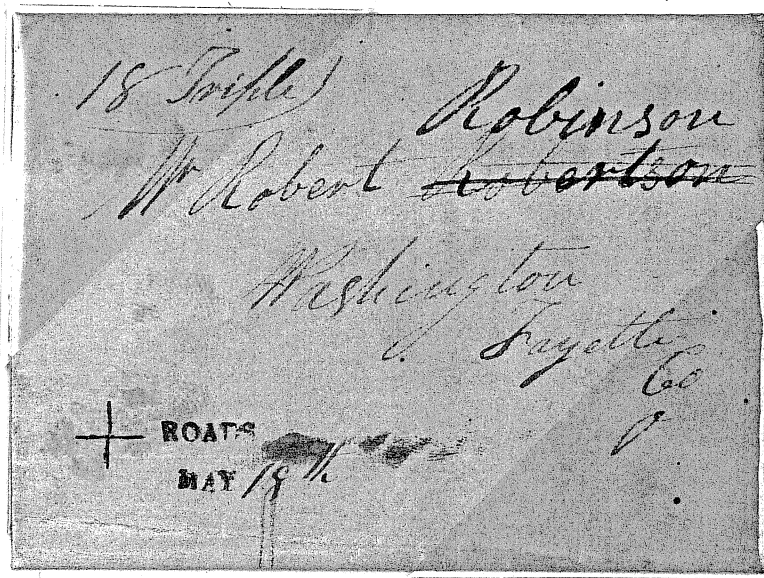 18 Triple
Robinson
Mr Robert Robertson
Washington
Fayette
Co
O
+ ROADS
MAY 18th